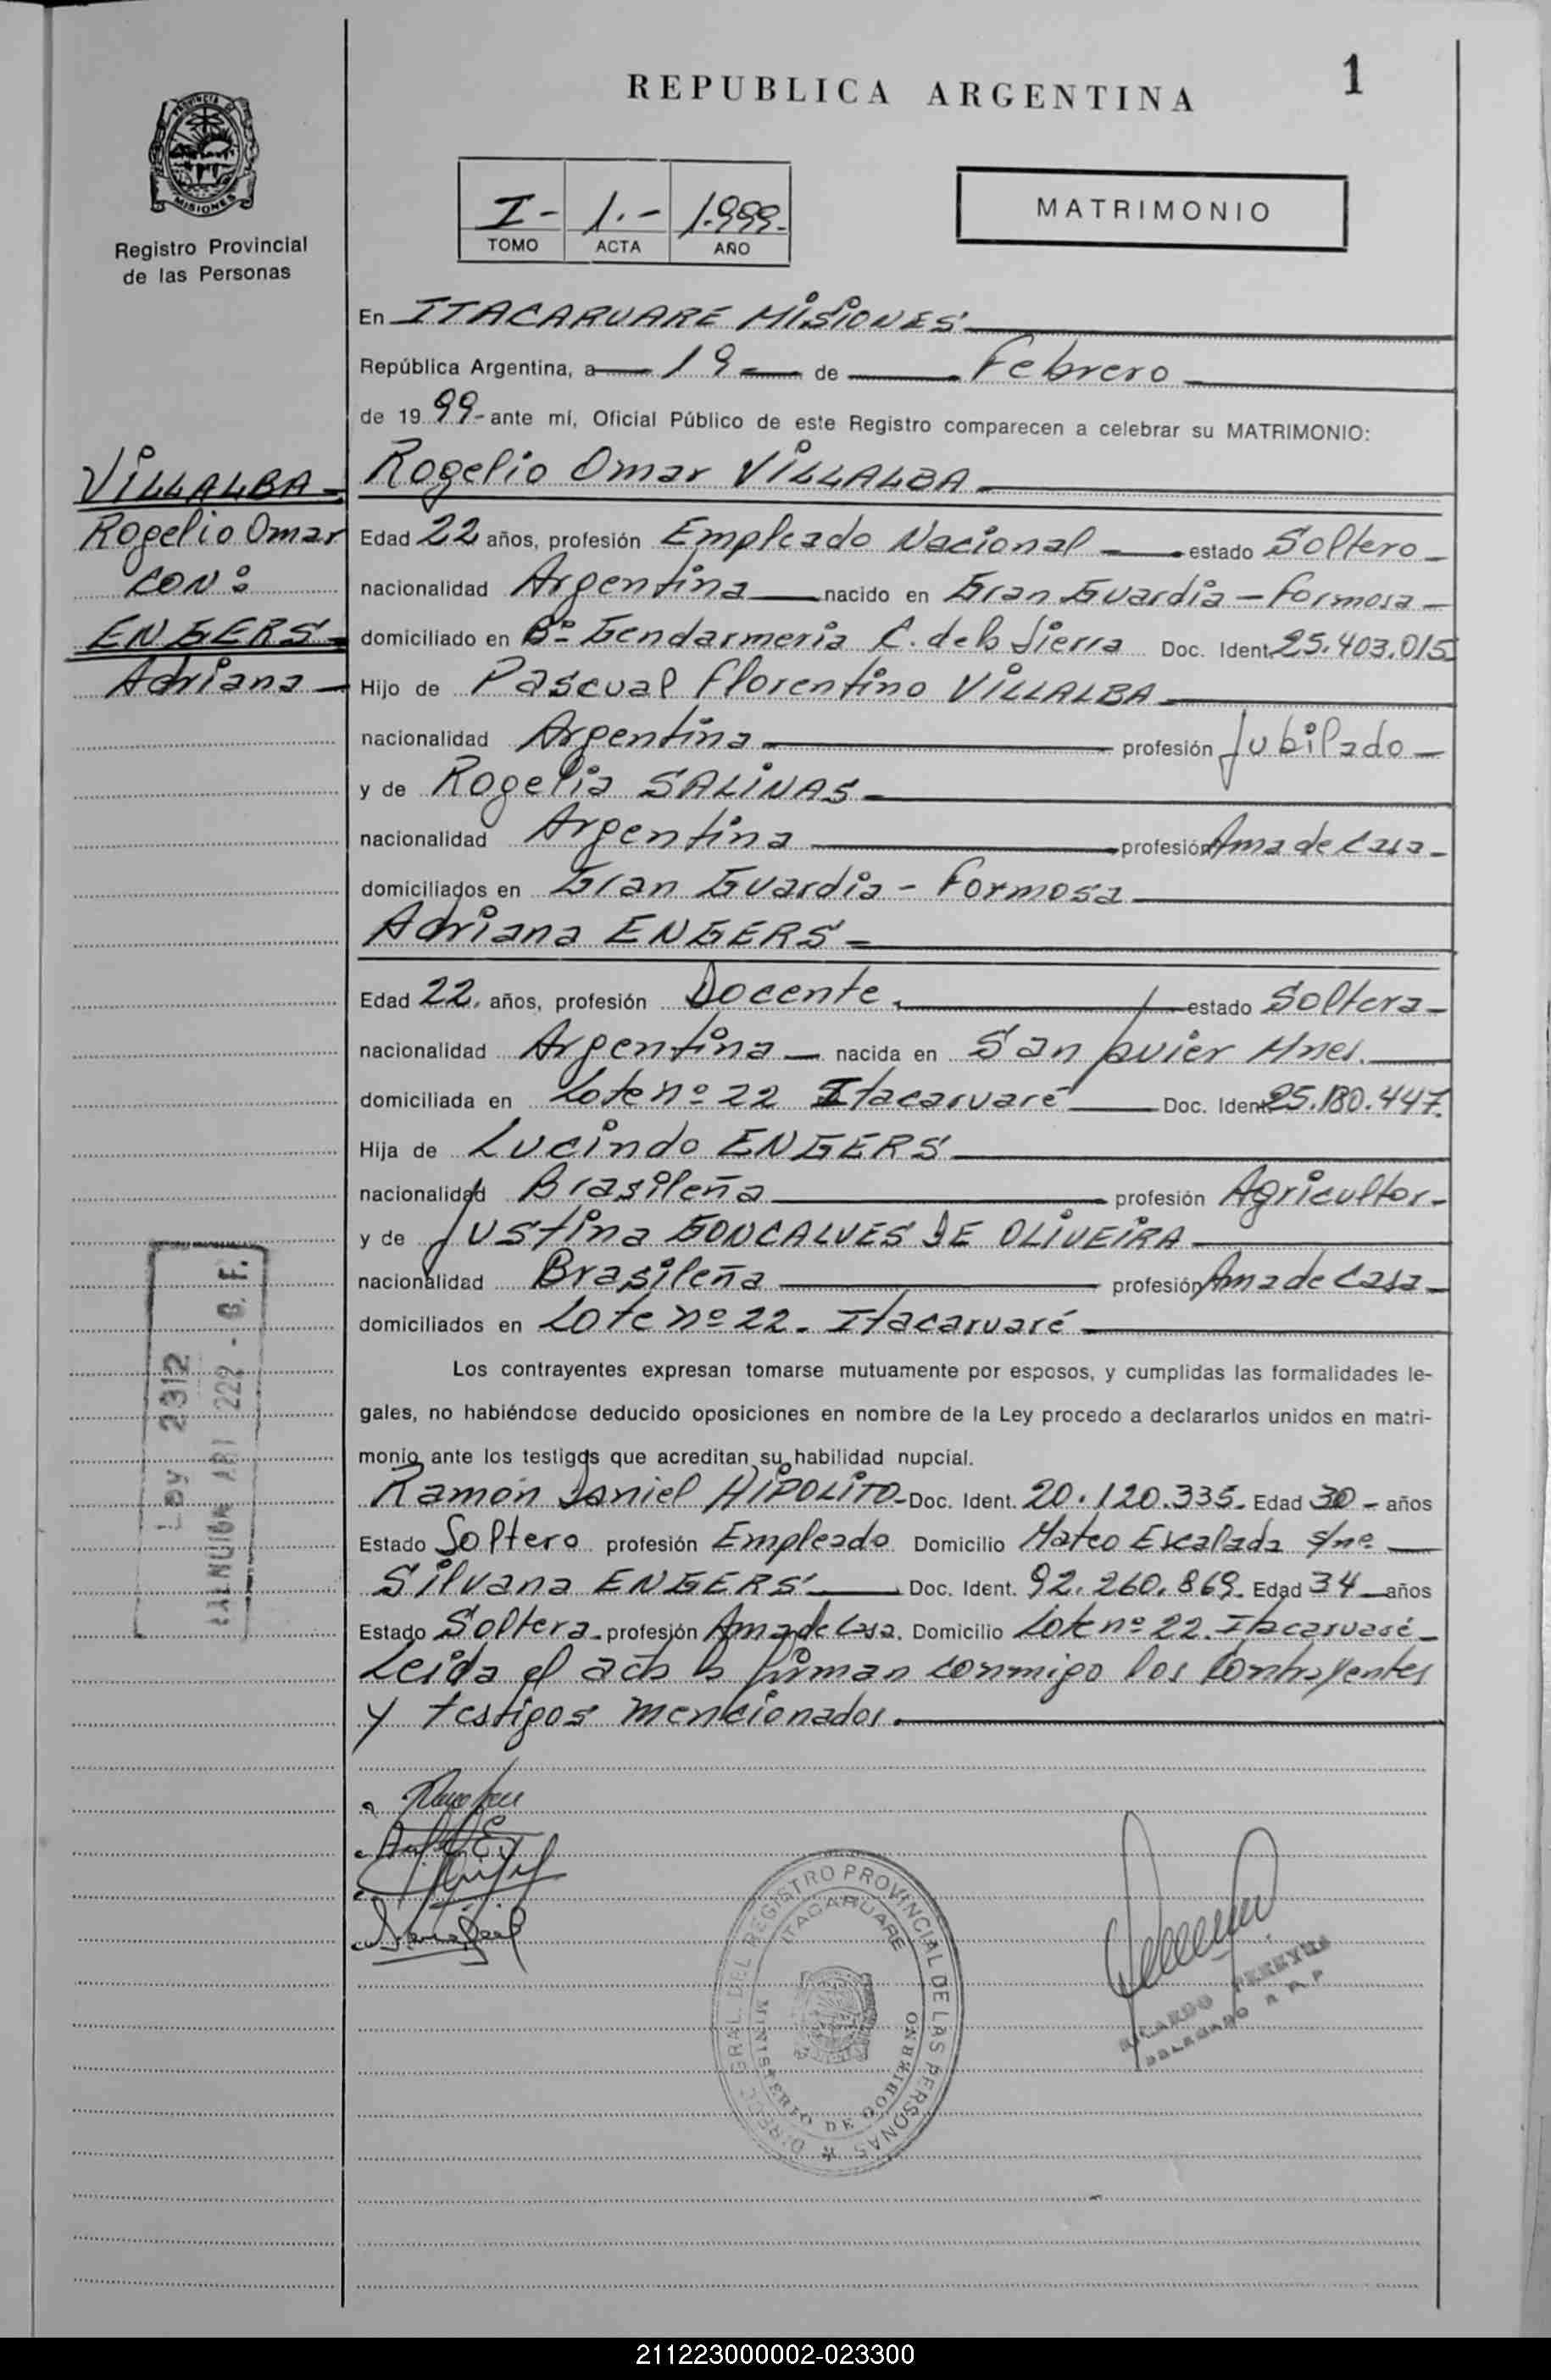 REPUBLICA ARGENTINA
1
PROVINCIA DE
MISIONES
Registro Provincial
de las Personas
I- 1.- 1.999.-
TOMO ACTA AÑO
MATRIMONIO
En ITACARUARE MISIONES
República Argentina, a 19 de Febrero
de 19 99- ante mí, Oficial Público de este Registro comparecen a celebrar su MATRIMONIO:
VILLALBA
Rogelio Omar
CON:
ENGERS
Adriana
Rogelio Omar VILLALBA
Edad 22 años, profesión Empleado Nacional estado Soltero
nacionalidad Argentina nacido en Gran Guardia - Formosa
domiciliado en Bº Gendarmeria C. de la Sierra Doc. Ident. 25.403.015
Hijo de Pascual Florentino VILLALBA
nacionalidad Argentina profesión Jubilado
y de Rogelia SALINAS
nacionalidad Argentina profesión Ama de Casa
domiciliados en Gran Guardia - Formosa
Adriana ENGERS
Edad 22. años, profesión Docente. estado Soltera
nacionalidad Argentina nacida en San Javier Mnes.
domiciliada en Lote nº 22 Itacaruaré Doc. Ident. 25.180.447.
Hija de Lucindo ENGERS
nacionalidad Brasileña profesión Agricultor
y de Justina GONCALVES DE OLIVEIRA
nacionalidad Brasileña profesión Ama de Casa
domiciliados en Lote nº 22. Itacaruaré
Los contrayentes expresan tomarse mutuamente por esposos, y cumplidas las formalidades le-
gales, no habiéndose deducido oposiciones en nombre de la Ley procedo a declararlos unidos en matri-
monio ante los testigos que acreditan su habilidad nupcial.
Ramón Daniel HIPOLITO Doc. Ident. 20.120.335. Edad 30 años
Estado Soltero profesión Empleado Domicilio Mateo Escalada s/nº
Silvana ENGERS Doc. Ident. 92.260.869. Edad 34 años
Estado Soltera profesión Ama de Casa. Domicilio Lote nº 22. Itacaruaré
Leída el acta la firman conmigo los Contrayentes
y testigos mencionados.
Ley 2312
ART 222 -
DIREC. GRAL. DEL REGISTRO PROVINCIAL DE LAS PERSONAS
ITACARUARE
MINISTERIO DE GOBIERNO
RICARDO PEREYRA
DELEGADO R P P
211223000002-023300